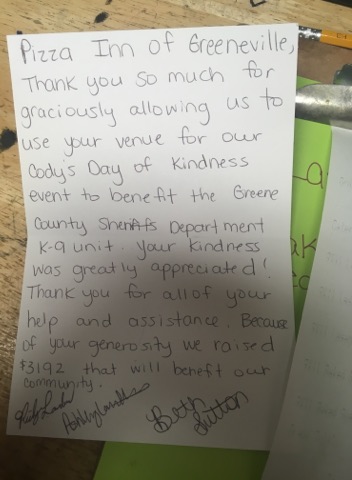 Pizza Inn of Greeneville,
Thank you so much for
graciously allowing us to
use your venue for our
Cody's Day of Kindness
event to benefit the Greene
County Sheriffs Department
K-9 unit. Your kindness
was greatly appreciated!
Thank you for all of your
help and assistance. Because
of your generosity we raised
$3192 that will benefit our
community.
Betty Sutton